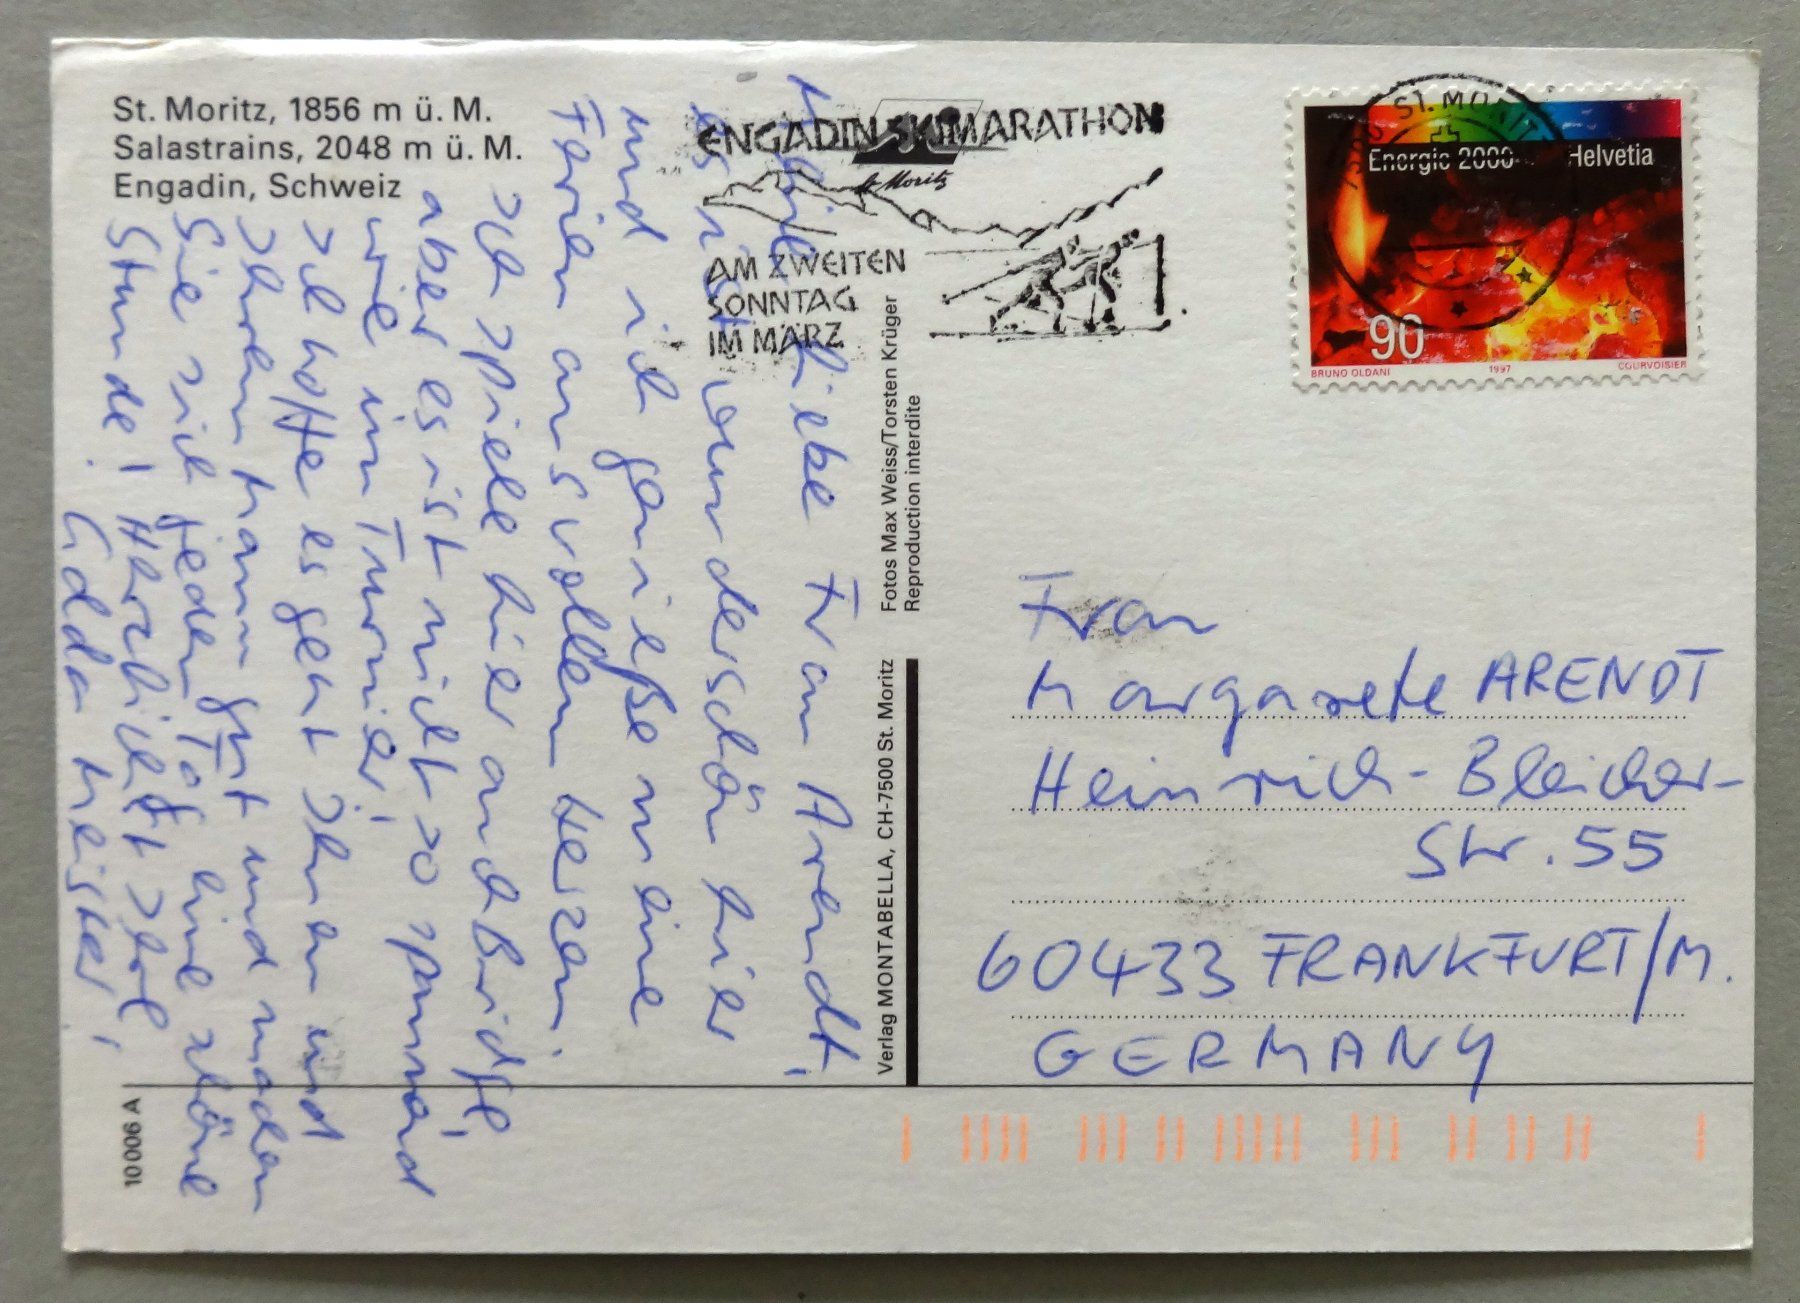 St. Moritz, 1856 m ü. M.
Salastrains, 2048 m ü. M.
Engadin, Schweiz
Meine liebe Frau Arendt,
es ist wunderschön hier
und ich genieße meine
Ferien aus vollem Herzen.
Ich spiele hier auch Bridge,
aber es ist nicht so spannend
wie im Turnier!
Ich hoffe es geht Ihnen und
Ihrem Mann gut und machen
Sie sich jeden Tag eine schöne
Stunde! Herzlichst Ihre
Gilda Meister!
ENGADIN SKIMARATHON
St. Moritz
AM ZWEITEN
SONNTAG
IM MÄRZ
Fotos Max Weiss/Torsten Krüger
Reproduction interdite
Verlag MONTABELLA, CH-7500 St. Moritz
10 006 A
ST. MORITZ
Energie 2000 Helvetia
90
BRUNO OLDANI 1997 COURVOISIER
Frau
Margarete ARENDT
Heinrich-Bleicher-
Str. 55
60433 FRANKFURT/M.
GERMANY